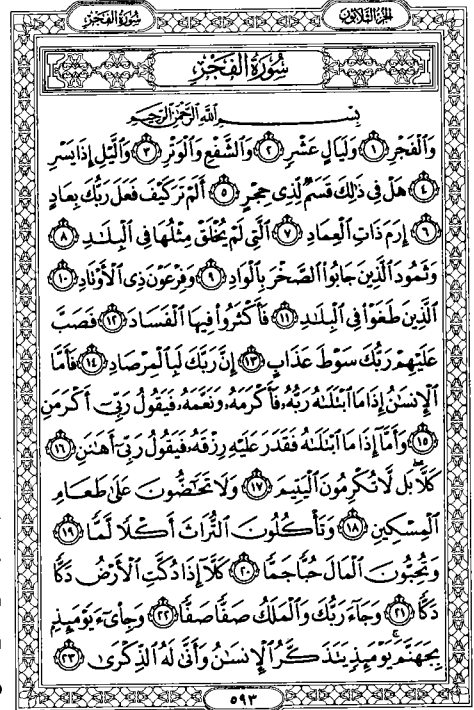 سُورَةُ الفَجْرِ الجزء الثلاثون
سُورَةُ الفَجْرِ
بِسْمِ ٱللَّهِ ٱلرَّحْمَٰنِ ٱلرَّحِيمِ
وَٱلْفَجْرِ ١ وَلَيَالٍ عَشْرٍ ٢ وَٱلشَّفْعِ وَٱلْوَتْرِ ٣ وَٱلَّيْلِ إِذَا يَسْرِ
٤ هَلْ فِى ذَٰلِكَ قَسَمٌ لِّذِى حِجْرٍ ٥ أَلَمْ تَرَ كَيْفَ فَعَلَ رَبُّكَ بِعَادٍ
٦ إِرَمَ ذَاتِ ٱلْعِمَادِ ٧ ٱلَّتِى لَمْ يُخْلَقْ مِثْلُهَا فِى ٱلْبِلَٰدِ ٨
وَثَمُودَ ٱلَّذِينَ جَابُوا۟ ٱلصَّخْرَ بِٱلْوَادِ ٩ وَفِرْعَوْنَ ذِى ٱلْأَوْتَادِ ١٠
ٱلَّذِينَ طَغَوْا۟ فِى ٱلْبِلَٰدِ ١١ فَأَكْثَرُوا۟ فِيهَا ٱلْفَسَادَ ١٢ فَصَبَّ
عَلَيْهِمْ رَبُّكَ سَوْطَ عَذَابٍ ١٣ إِنَّ رَبَّكَ لَبِٱلْمِرْصَادِ ١٤ فَأَمَّا
ٱلْإِنسَٰنُ إِذَا مَا ٱبْتَلَىٰهُ رَبُّهُۥ فَأَكْرَمَهُۥ وَنَعَّمَهُۥ فَيَقُولُ رَبِّىٓ أَكْرَمَنِ
١٥ وَأَمَّآ إِذَا مَا ٱبْتَلَىٰهُ فَقَدَرَ عَلَيْهِ رِزْقَهُۥ فَيَقُولُ رَبِّىٓ أَهَٰنَنِ ١٦
كَلَّا ۖ بَل لَّا تُكْرِمُونَ ٱلْيَتِيمَ ١٧ وَلَا تَحَٰٓضُّونَ عَلَىٰ طَعَامِ
ٱلْمِسْكِينِ ١٨ وَتَأْكُلُونَ ٱلتُّرَاثَ أَكْلًا لَّمًّا ١٩
وَتُحِبُّونَ ٱلْمَالَ حُبًّا جَمًّا ٢٠ كَلَّآ إِذَا دُكَّتِ ٱلْأَرْضُ دَكًّا
دَكًّا ٢١ وَجَآءَ رَبُّكَ وَٱلْمَلَكُ صَفًّا صَفًّا ٢٢ وَجِا۟ىٓءَ يَوْمَئِذٍۭ
بِجَهَنَّمَ ۚ يَوْمَئِذٍ يَتَذَكَّرُ ٱلْإِنسَٰنُ وَأَنَّىٰ لَهُ ٱلذِّكْرَىٰ ٢٣
٥٩٣